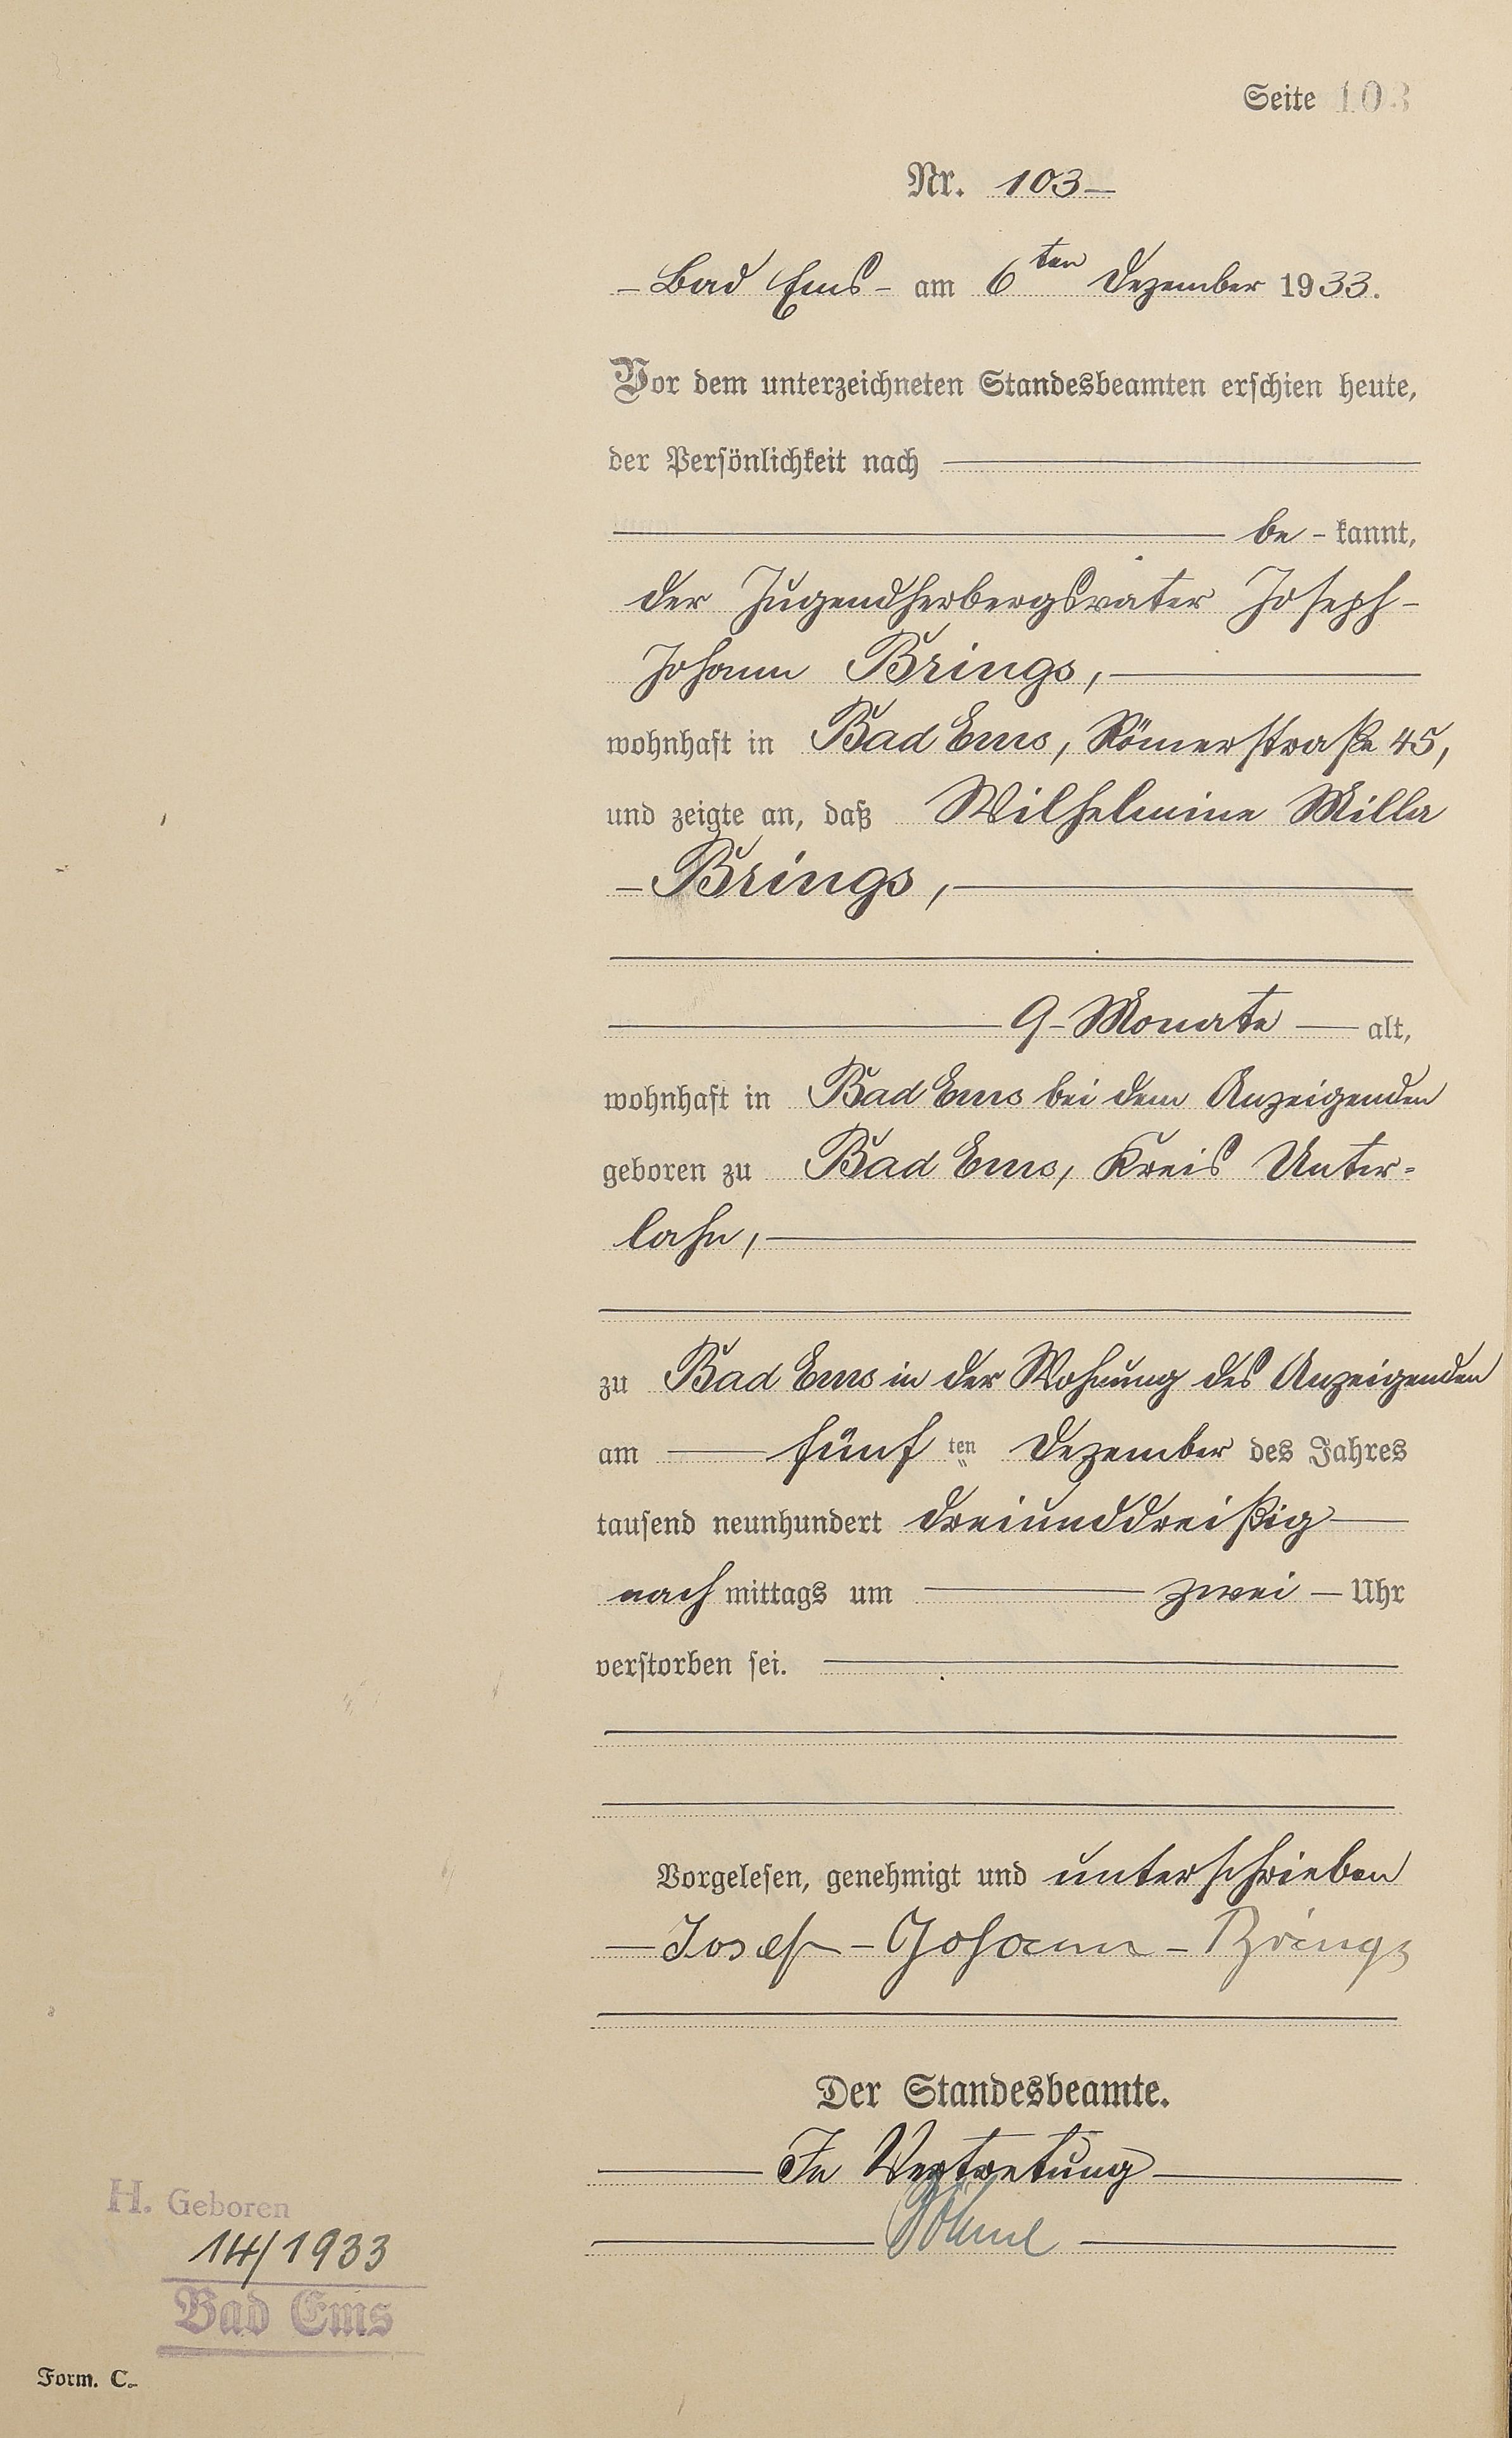 Seite 103
Nr. 103 –
– Bad Ems – am 6ten Dezember 1933.
Vor dem unterzeichneten Standesbeamten erschien heute,
der Persönlichkeit nach
be - kannt,
der Jugendherbergsvater Joseph -
Johann Brings,
wohnhaft in Bad Ems, Römerstraße 45,
und zeigte an, daß Wilhelmine Milla
– Brings,
9 - Monate — alt,
wohnhaft in Bad Ems bei dem Anzeigenden
geboren zu Bad Ems, Kreis Unter-
lahn,
zu Bad Ems in der Wohnung des Anzeigenden
am — fünf ten Dezember des Jahres
tausend neunhundert dreiunddreißig
nach mittags um zwei — Uhr
verstorben sei.
Vorgelesen, genehmigt und unterschrieben
— Josef - Johann - Brings
Der Standesbeamte.
In Vertretung
H. Geboren
14/1933
Bad Ems
Form. C.